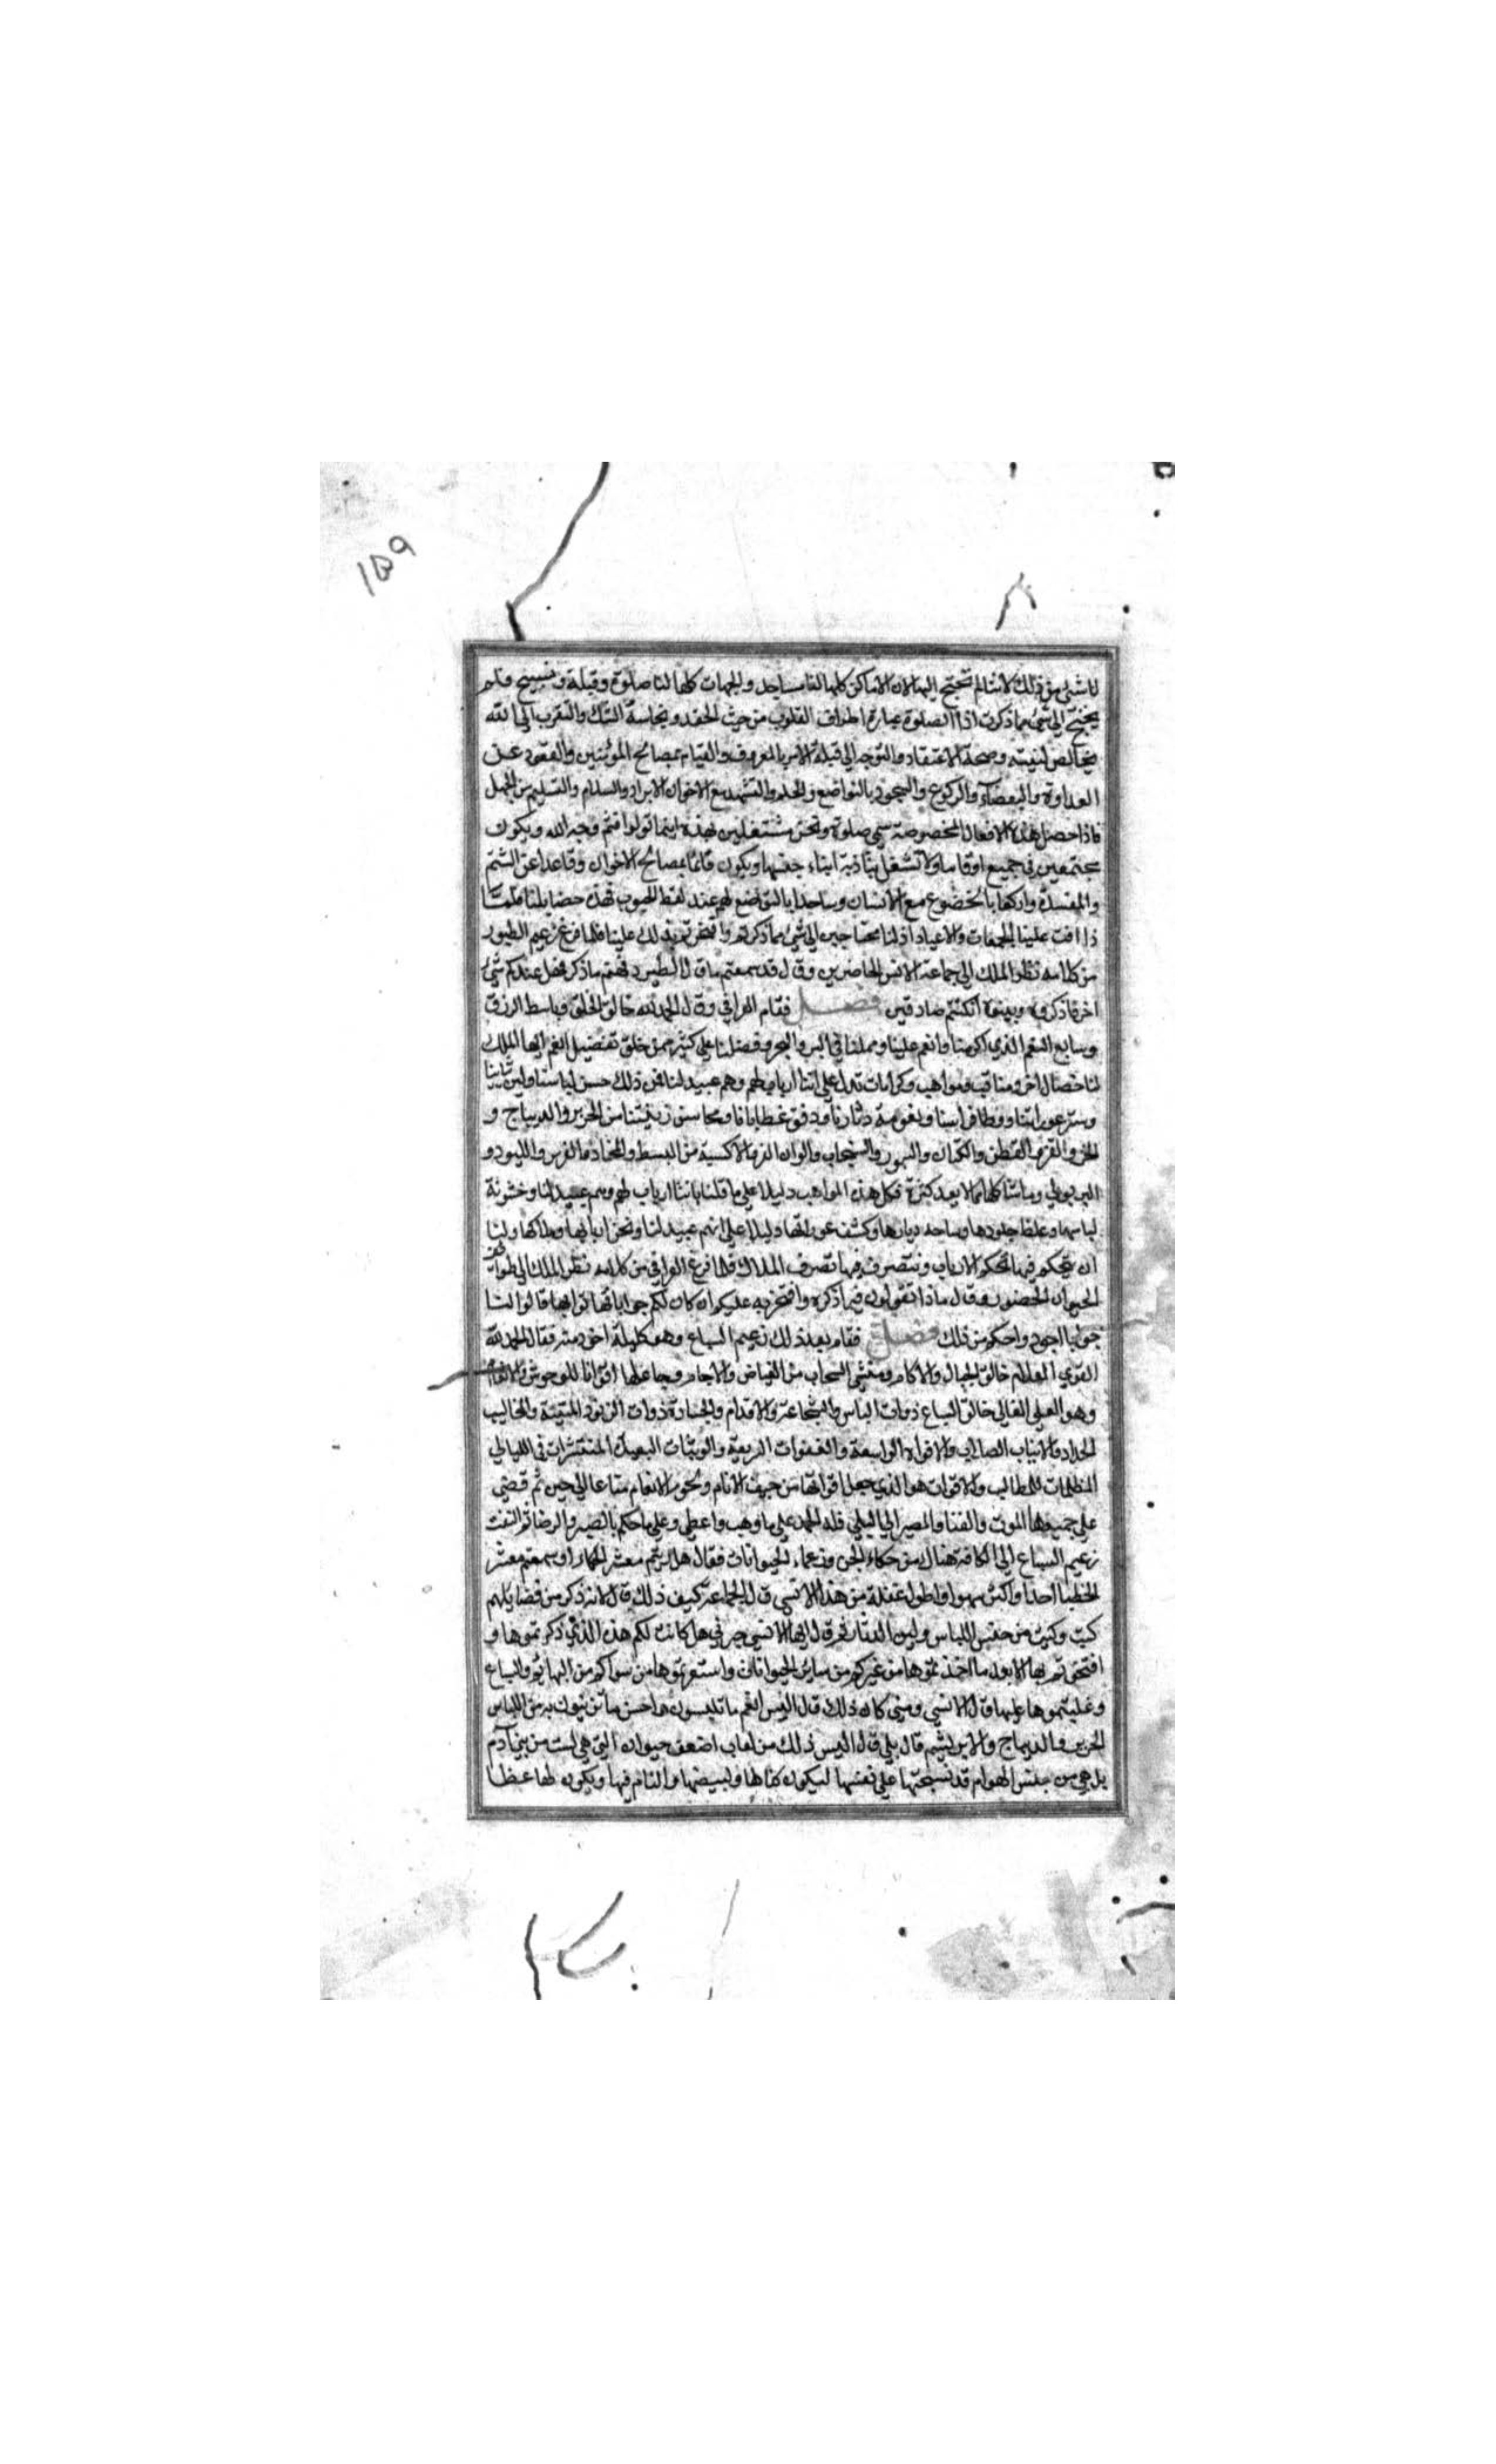 ١٥٩
لنا شئ من ذلك لاننا لم نحتج اليها لان الاماكن كلها لنا مساجد والجهات كلها لنا صلوة وقبلة وتسبيح فلم
يحتج الى شئ مما ذكرت اذا الصلوة عبارة القلوب من حيث الحقد ونجاسة الشك والتقرب الى الله
بخالص لنيته وصحة الاعتقاد والتوجه الى قبلة الامر بالمعروف والقيام بمصالح المؤمنين والقعود عن
العداوة والبغضآء والركوع والسجود بالتواضع والحلم والتشهد مع الاخوان الابرار والسلام والتسليم من الجهل
فاذا حصل هذه الافعال المخصوصة سمي صلوة ونحن مشتغلين بهذه اينما تولوا فثم وجه الله ويكون
مجتمعين في جميع اوقاتنا ولا نشغل بتأذية ابناء جنسها ويكون قائما بمصالح الاخوان وقاعدا عن الشتم
والمفسدة واركها بالخضوع مع الانسان وساجدا بالتواضع لهم عند لقط الحبوب فهذه خصايلنا
علينا الجمعات والاعياد اذ لنا محتاجين الى شئ مما ذكرتم وافتخرتم بذلك علينا فلما فرغ زعيم الطيور
من كلامه نظر الملك الى جماعة الانس الحاضرين وقال قد سمعتم ما قال الطير وفهمتم ما ذكر فهل عندكم شئ
اخر فاذكروه وبينوه ان كنتم صادقين فصل فقام العراقي وقال الحمد لله خالق الخلق وباسط الرزق
وسابغ النعم الذي اكرمنا وانعم علينا وحملنا في البر والبحر وفضلنا على كثير ممن خلق تفضيلا نعم ايها الملك
لنا خصال اخر ومناقب ومواهب وكرامات تدل على اننا ارباب لهم وهم عبيد لنا فمن ذلك حسن لباسنا ولين ثيابنا
وستر عوراتنا ووطا فراشنا ونعومة دثارنا ودفو غطايانا ومحاسن زينتنا من الحرير والديباج و
الخز والقز والقطن والكتان والسمور والسنجاب والوان الفرو الاكسية من البسط والمخاد والفرش واللبود و
البريون وما شاكلها مما لا يعد كثرة فكل هذه المواهب دليلا على ما قلنا باننا ارباب لهم وهم عبيد لنا وخشونة
لباسها وغلظ جلودها وكشف عوراتها دليلا على انهم عبيد لنا ونحن اربابها وملاكها ولنا
ان نتحكم فيها تحكم الارباب ونتصرف فيها تصرف الملاك فلما فرغ العراقي من كلامه نظر الملك الى طوائف
الحيوان الحضور وقال ماذا تقولون فيما ذكره وافتخر به عليكم ان كان لكم جوابا فهاتوا بها قالوا لنا
جوابا اجود واحكم من ذلك فصل فقام بعد ذلك زعيم السباع وهو كليلة اخو دمنه فقال الحمد لله
القوي العلام خالق الجبال والاكام ومنشي السحاب من الغياض والاجام وجاعلها اقواتا للوحوش والانعام
وهو العلي العالي خالق السباع ذوات الباس والشجاعة والاقدام والجسارة ذوات الزنود المتينة والمخاليب
الحداد والانياب الصلاب والافواه الواسعة والقفزات السريعة والوثبات البعيدة المنتشرات في الليالي
المظلمات للمطالب والاقوات هو الذي جعل اقواتها من جيف الانام ولحوم الانعام متاعا الى حين ثم قضى
على جميعها الموت والفنا والمصير الى البلى فله الحمد على ما وهب واعطى وعلى ما حكم بالصبر والرضا ثم التفت
زعيم السباع الى الكافة هنالك من حكماء الجن وزعماء الحيوانات فقال هل رايتم معشر الحكماء او سمعتم معشر
الخطبا احدا واكثر سهوا واطول غفلة من هذا الانسي قال الجماعة كيف ذلك قال لانه ذكر من فضايلهم
كيت وكيت من حسن اللباس ولين الدثار ثم قال ايها الانسي خبرني هل كانت لكم هذه الذي ذكرتموها و
افتخرتم بها الا بعد ما اخذتموها من غيركم من سائر الحيوانات واستعرتموها من سواكم من البهائم والسباع
وغلبتموها عليها قال الانسي ومتى كان ذلك قال اليس انعم ما تلبسون واحسن ما تزينون به من اللباس
الحرير والديباج والابريشم قال بلى قال اليس ذلك من لعاب اضعف حيوان التي هي ليست من بني آدم
بل هي من جنس الهوام قد نسجتها على نفسها ليكون كنا لها ولبيضها والنام فيها ويكون لها غطا